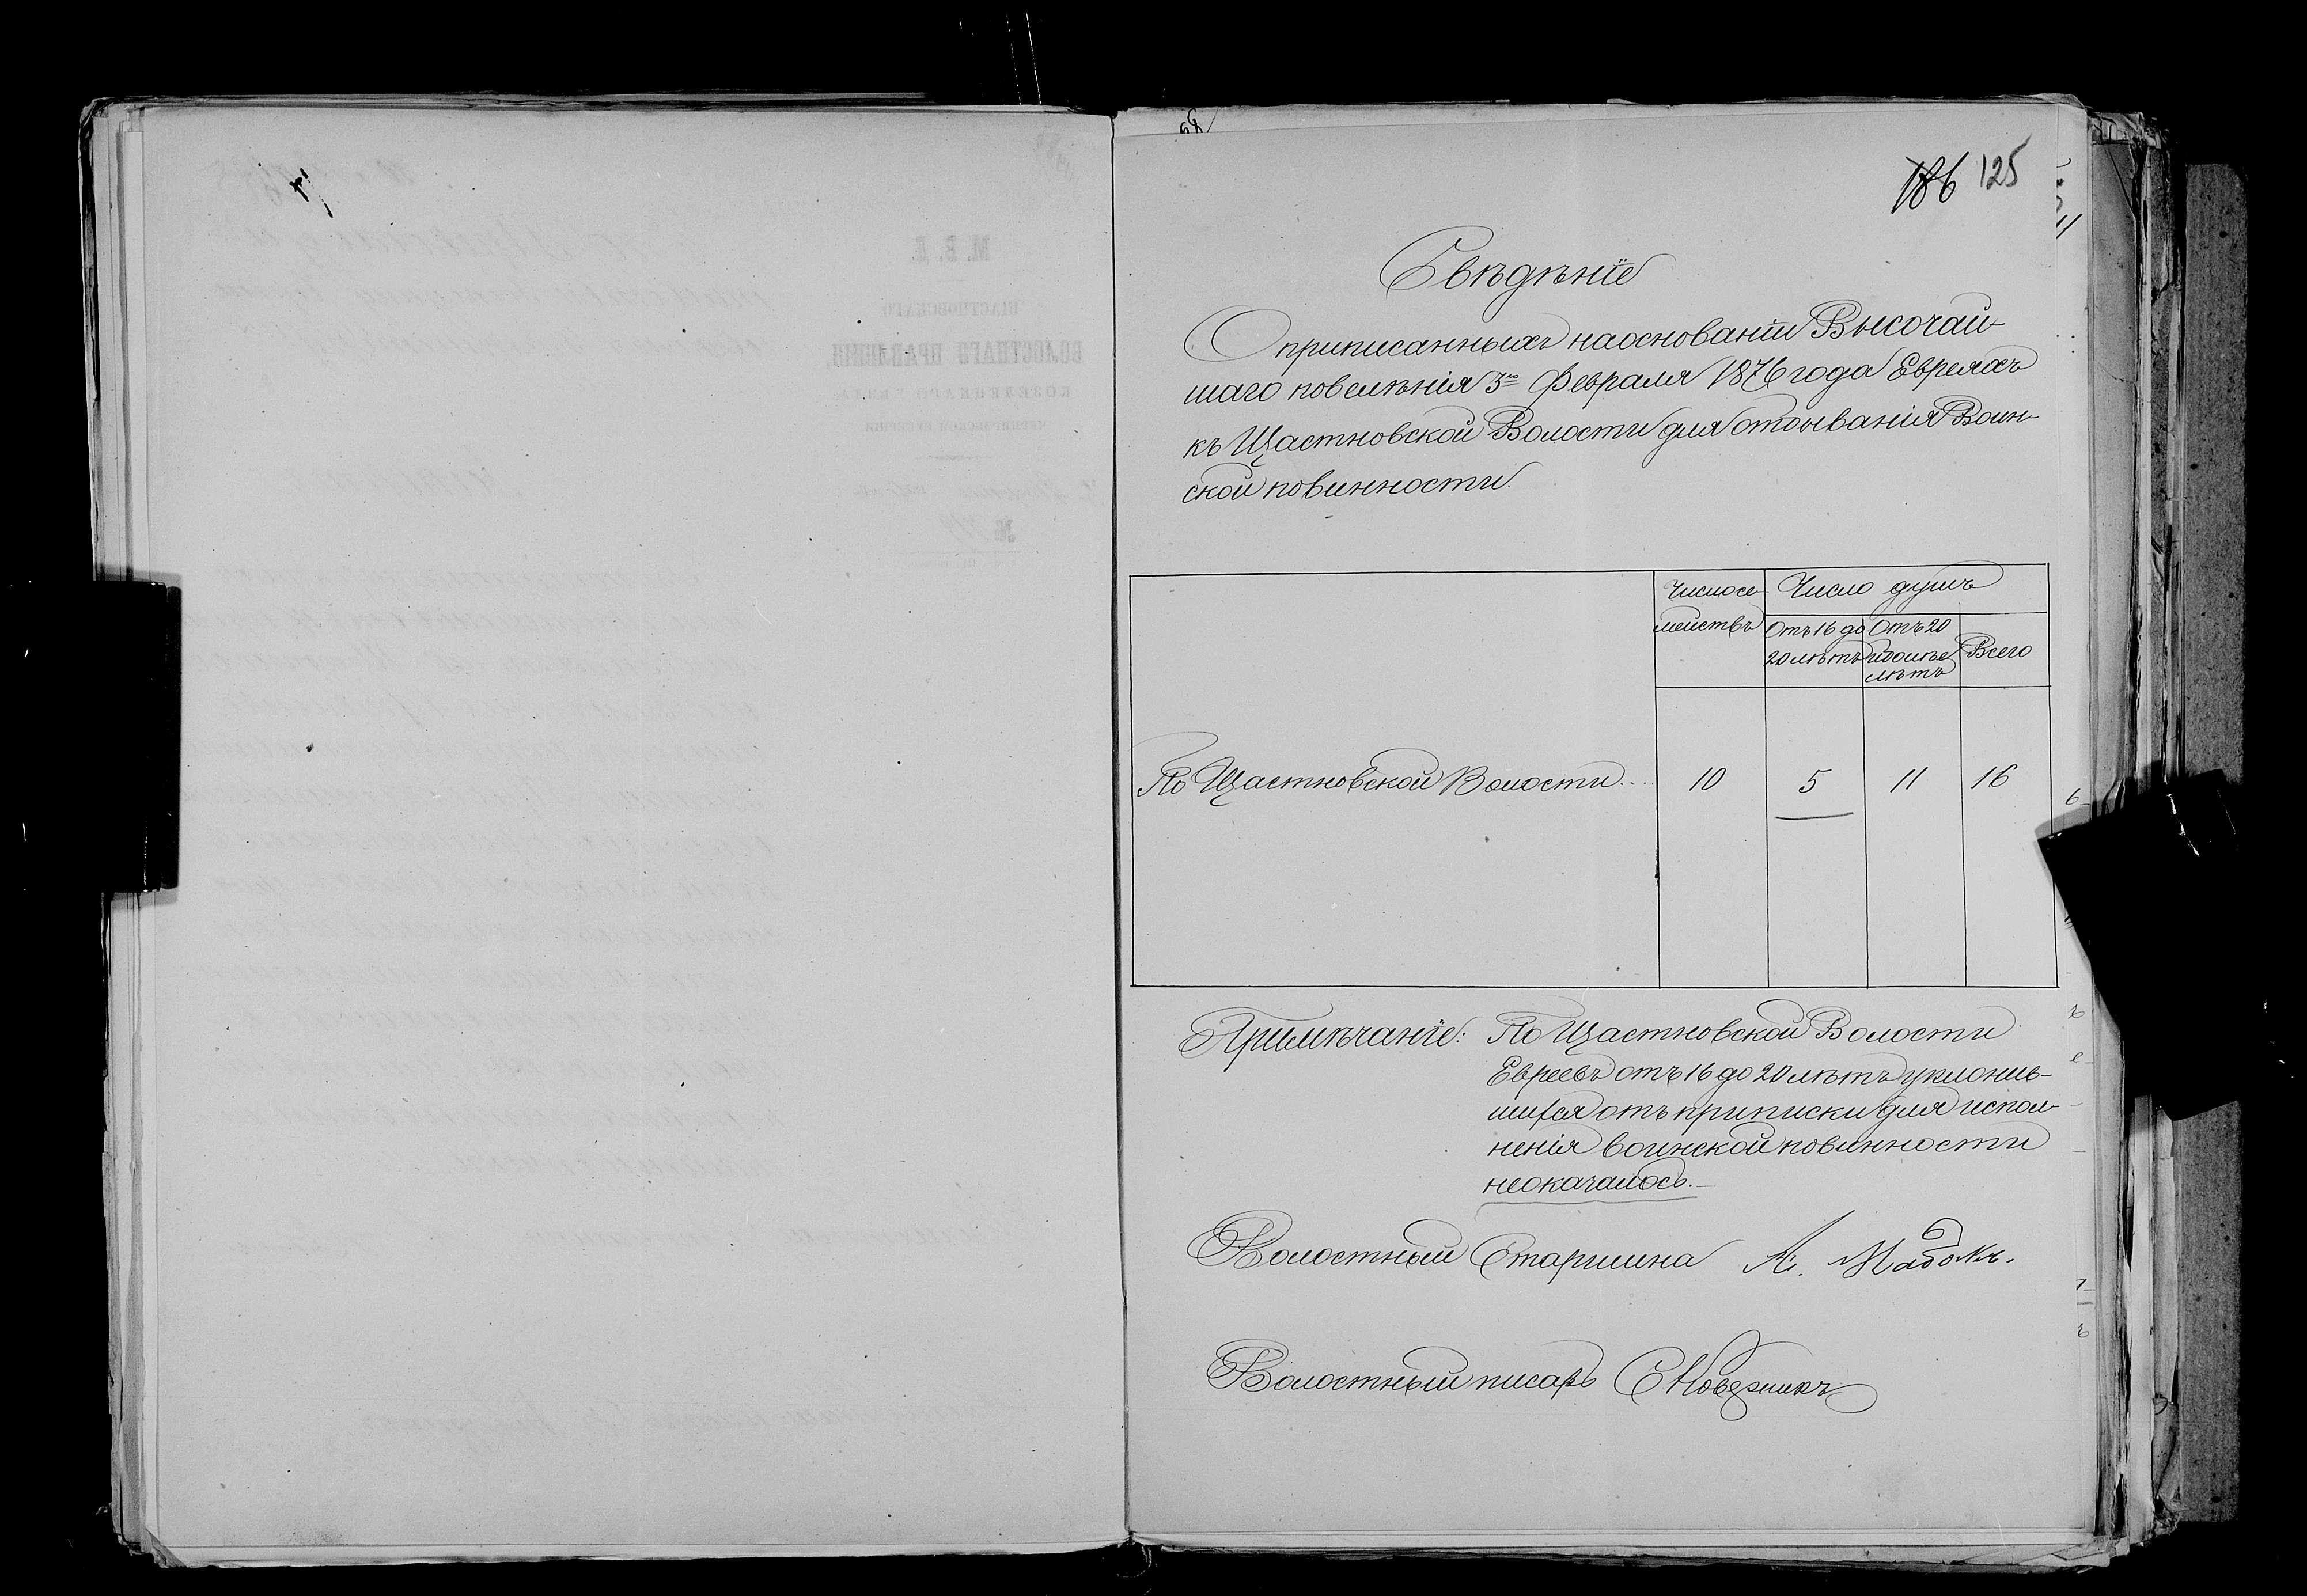 186 125
Свѣдѣніе
О приписанныхъ на основаніи Высочай-
шаго повелѣнія 3го Февраля 1876 года Евреяхъ
къ Щастновской Волости для отбыванія Воин-
ской повинности.
Число се-
мействъ
Число душъ
Отъ 16 до
20 лѣтъ
Отъ 20
и болѣе
лѣтъ
Всего
По Щастновской Волости... 10 5 11 16
Примѣчаніе: По Щастновской Волости
Евреевъ отъ 16 до 20 лѣтъ уклонив-
шихся отъ приписки для испол-
ненія воинской повинности
неоказалось.—
Волостный Старшина А.
Волостный писарь